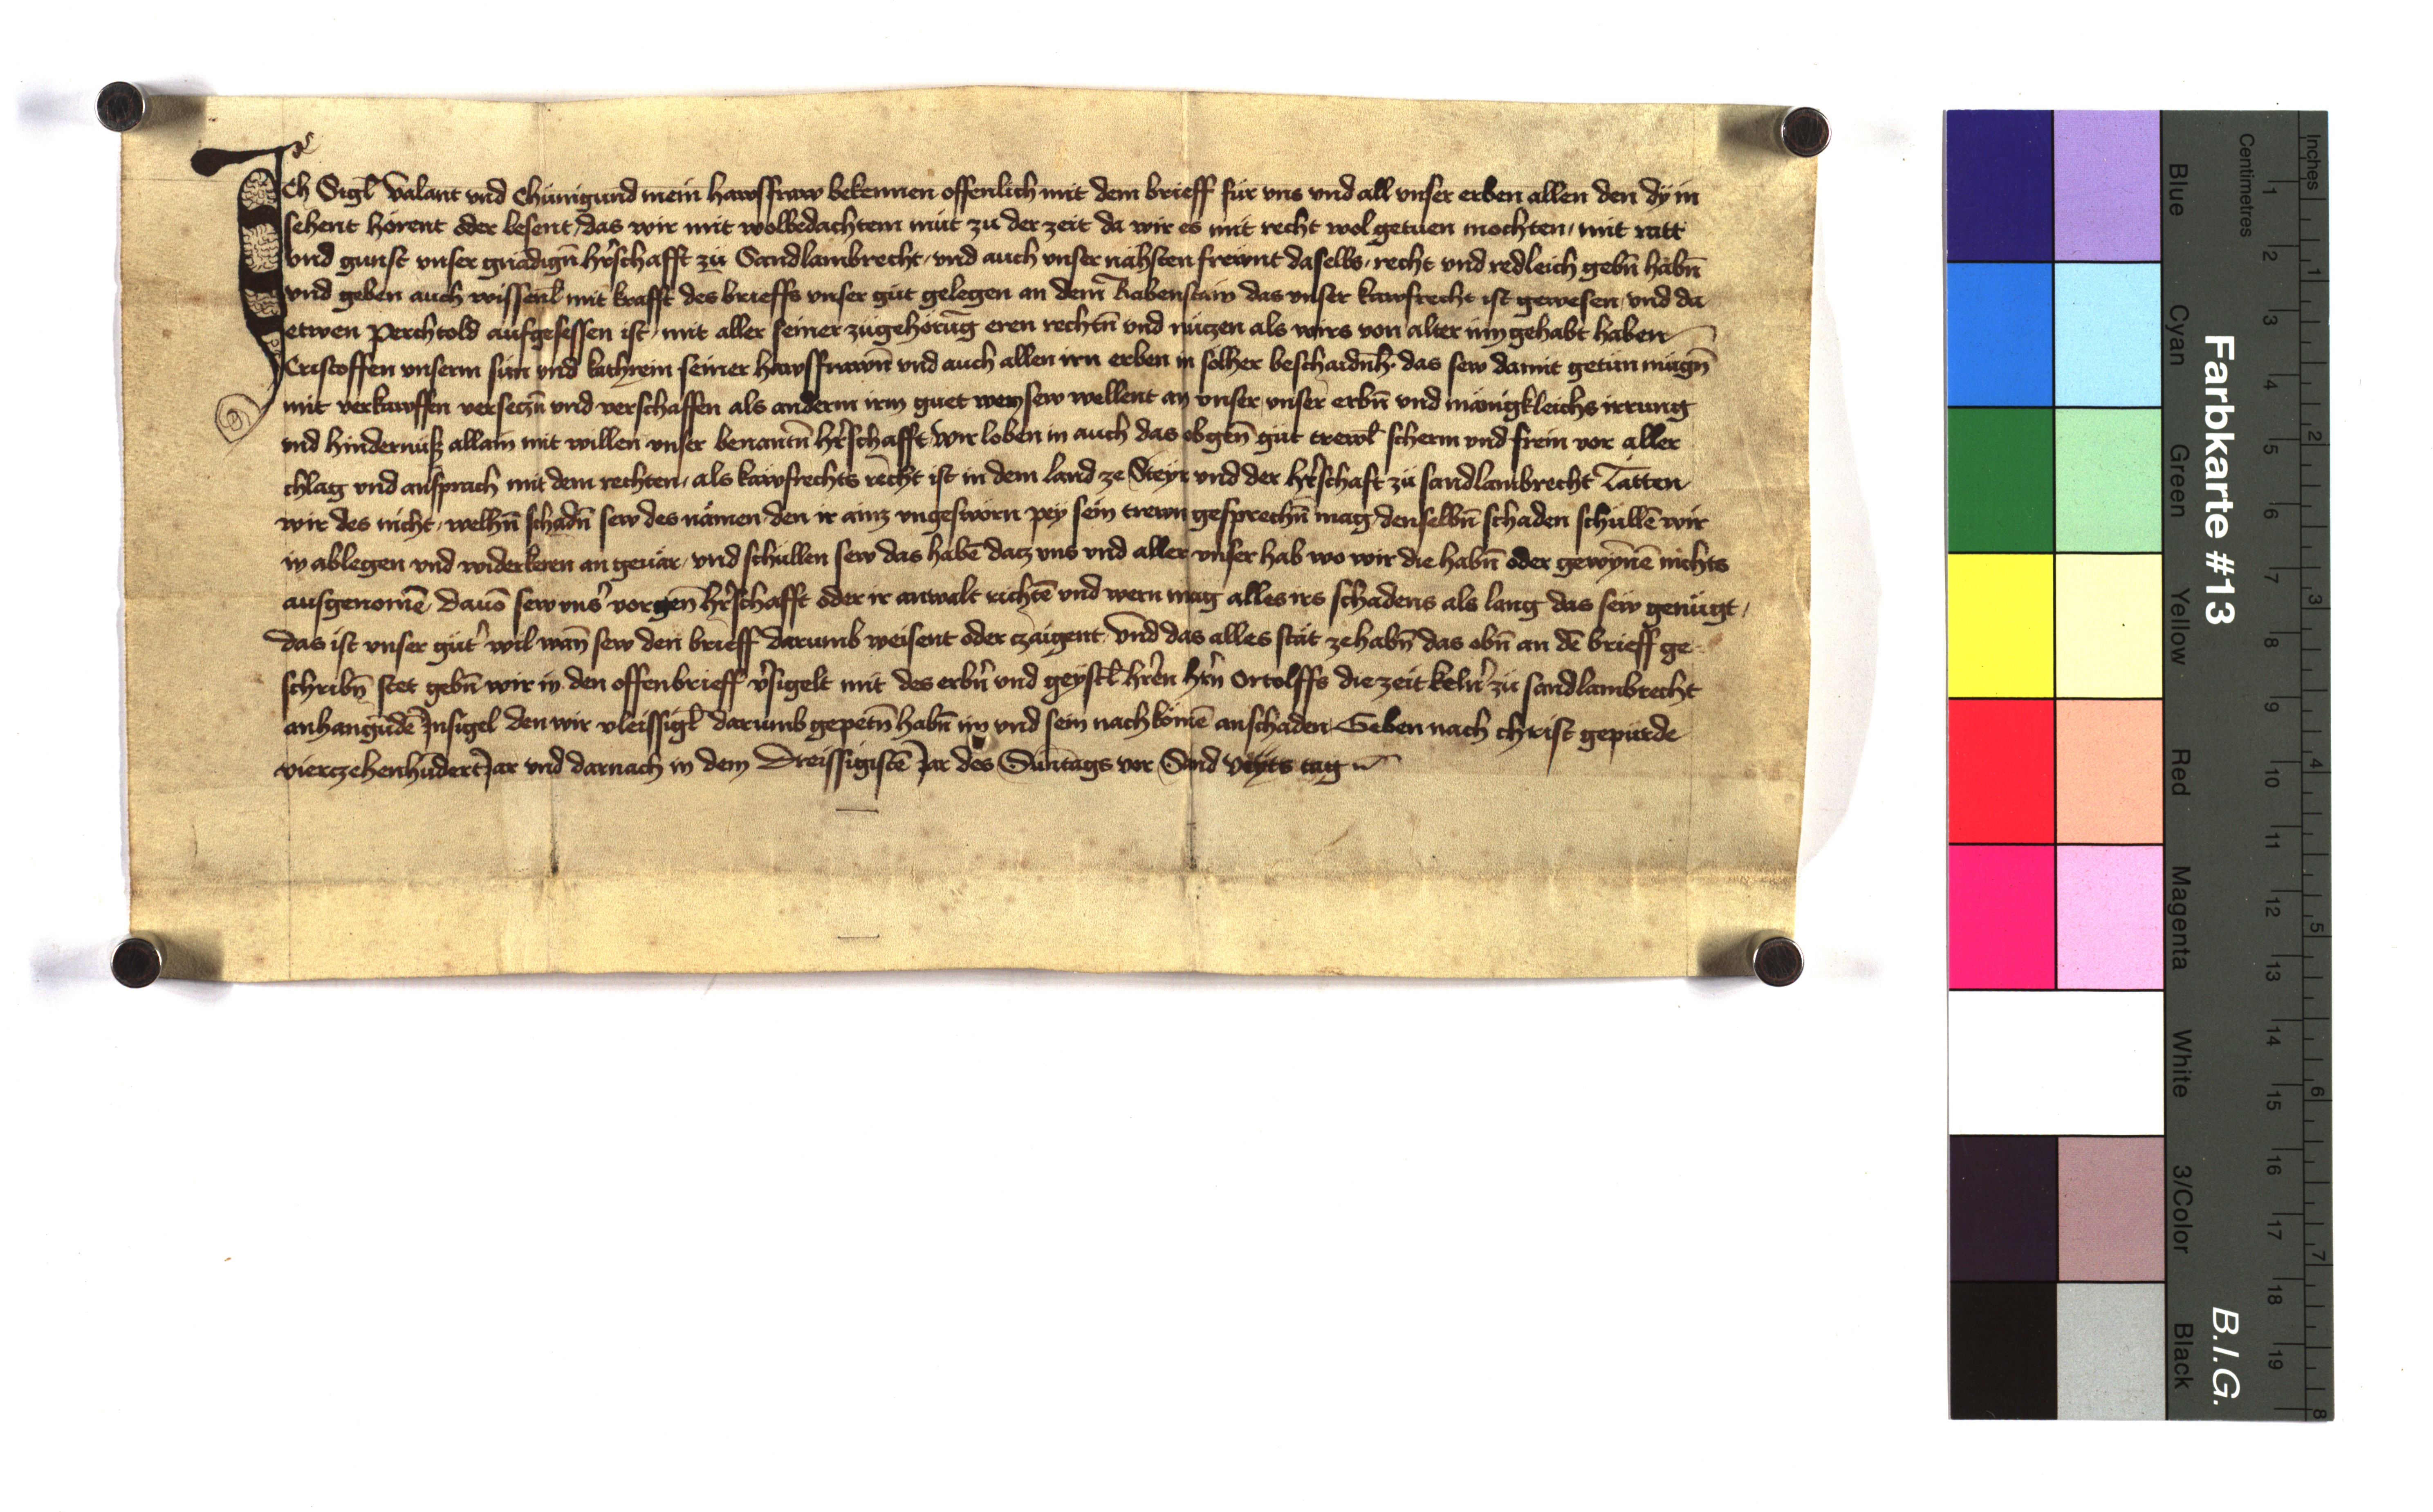 Ich Sigl̄ Valant vnd Chünigund mein hawsfraw bekennen offenlich mit dem brieff für vns vnd all vnser erben allen den dy in
sehent hörent oder lesent, das wir mit wolbedachtem müt zu der zeit da wir es mit recht wol getuen mochten, mit ratt
vnd gunst vnser gnädigñ hr̄schafft zü Sandlambrecht, vnd auch vnser nähsten frewnt daselbs, recht vnd redleich gebñ habñ
vnd geben auch wissenl̄ mit krafft des brieffs vnser güt gelegen an dem Rabenstain das vnser kawfrecht ist gewesen, vnd da
etwen Perchtold aufgesessen ist, mit aller seiner zügehörūg eren rechtñ vnd nüczen als wirs von alter inn gehabt haben
Cristoffen vnserm sün vnd kathrein seiner hawsfrawñ vnd auch allen irn erben in sölher beschaidnh̄. das sew damit getün mügñ
mit verkawffen verseczñ vnd verschaffen als anderm irm guet wem sew wellent an vnser vnser erbñ vnd mänigkleichs irrung
vnd hindernüß allain mit willen vnser benantñ hr̄schafft, wir loben in auch das obgeñ güt trewl̄ scherm vnd frein vor aller
chlag vnd ansprach mit dem rechten, als kawfrechts recht ist in dem land ze Steyr vnd der hr̄schaft zü sandlambrecht Tätten
wir des nicht, welhñ schadñ sew des nämen, den ir ainz vngesworn pey sein trewn gesprechñ mag, denselbñ schaden schüllē wir
in ablegen vnd widerkeren an geuär, vnd schüllen sew das habē dacz vns vnd aller vnser hab wo wir die habñ oder gewȳnnē nichts
ausgenomē, dauō sew vns̛ vorgeñ hr̄schafft oder ir anwalt richtē vnd wern mag alles irs schadens als lang das sew genügt,
das ist vnser güt̛ wil wañ sew den brieff darumb weisent oder czaigent, vnd das alles stät ze habñ das obñ an dē brieff ge
schribñ stet gebñ wir in den offenbrieff v̛sigelt mit des erbñ vnd geystl̄ hr̄en hr̄n Ortolffs die zeit keln̛ zü sandlambrecht
anhangūdē Insigel den wir vleissigl̄ darumb gepetñ habñ im vnd sein nachkömē anschaden Geben nach christ gepürde
vierczehenhūdert Jar vnd darnach in dem Dreissigistē Jar des Sūntags vor Sand veyts tag
Farbkarte #13
B.I.G.
Inches
Centimetres
1 2 3 4 5 6 7 8
1 2 3 4 5 6 7 8 9 10 11 12 13 14 15 16 17 18 19
Blue
Cyan
Green
Yellow
Red
Magenta
White
3/Color
Black